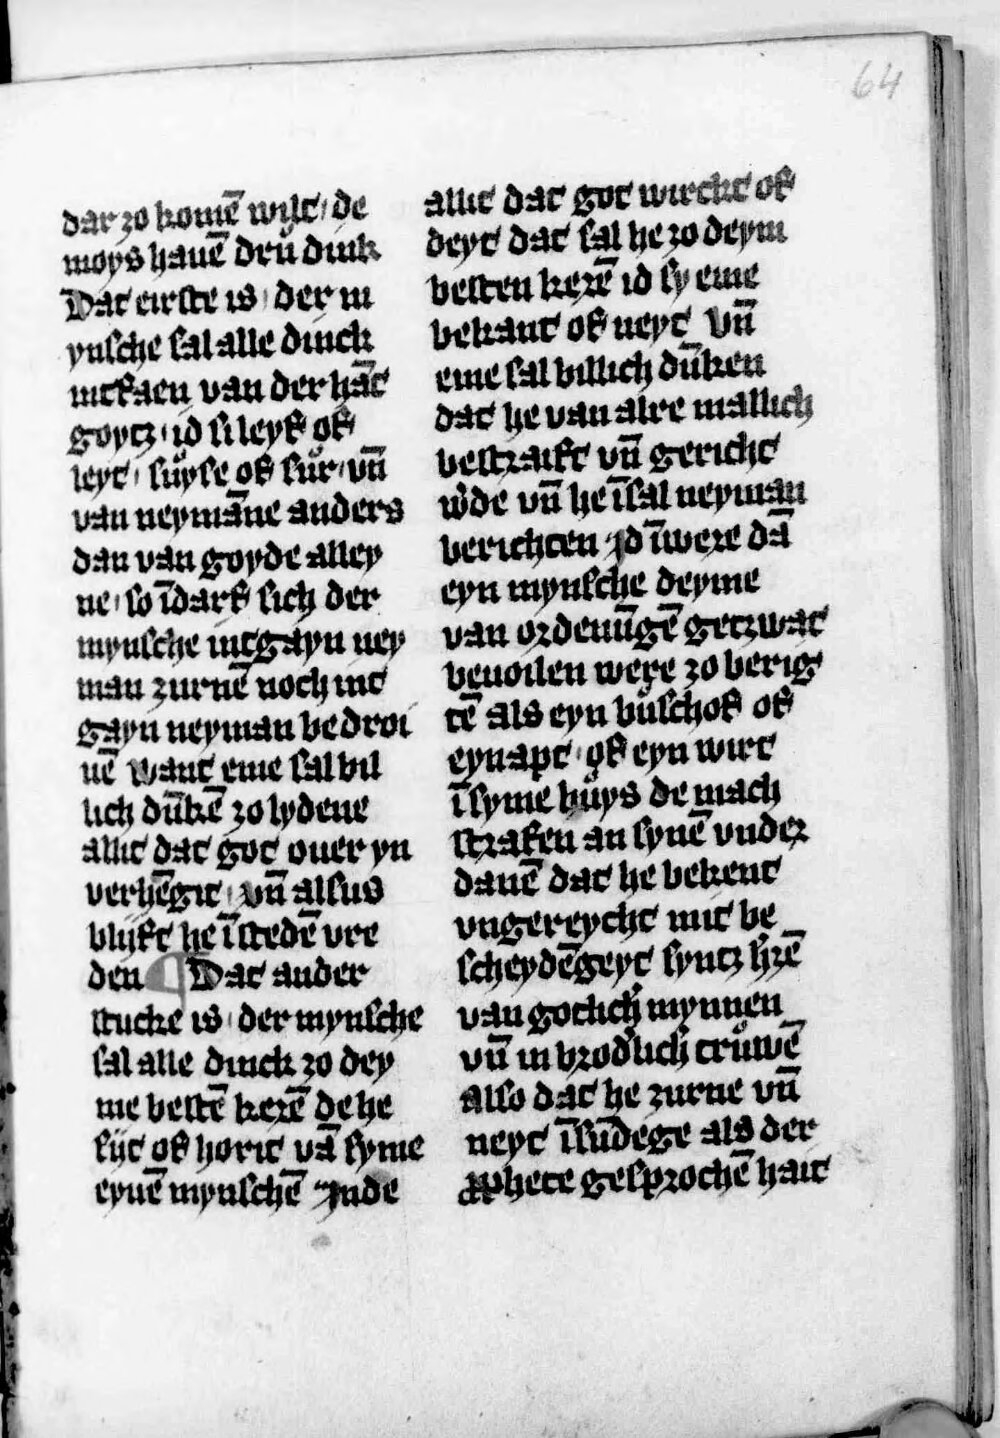 64
dar zo komē wilt / de
moys hauē drij dink
Dat eirste is / der m
ynsche sal alle dinck
intfaen van der hāt
goytz / id si leyf of
leyt / sůyse of sůr / vn̄
van neymāne anders
dan van goyde alley
ne / so īdarf sich der
mynsche intgayn ney
man zurnē noch int
gayn neyman bedroi
uē want eme sal bil
lich dūkē zo lydene
allit dat got ouer yn
verhēgit / vn̄ alsus
blijft he ī stedē vre
den ¶ Dat ander
stucke is / der mynsche
sal alle dinck zo dey
me bestē kerē de he
sijt of horit vā syme
eynē mynschē Inde
allit dat got wirckt of
deyt dat sal he zo deym
besten kerē id sy eme
bekant of neyt Vn̄
eme sal billich dūken
dat he van alre mallich
bestraift vn̄ gericht
ẘde vn̄ he īsal neyman
berichten Id īwere dā
eyn mynsche deyme
van ordenūgē getzwat
beuoilen were zo berig
tē als eyn buschof of
eyn apt / of eyn wirt
ī syme hůys de mach
strafen an synē vnder
danē dat he bekent
vngereycht mit be
scheydēgeyt syntz h'zē
van gotlich' mynnen
vn̄ in brod'lich' trůwē
also dat he zurne vn̄
neyt īsūdege als der
ꝓphete gesprochē hait